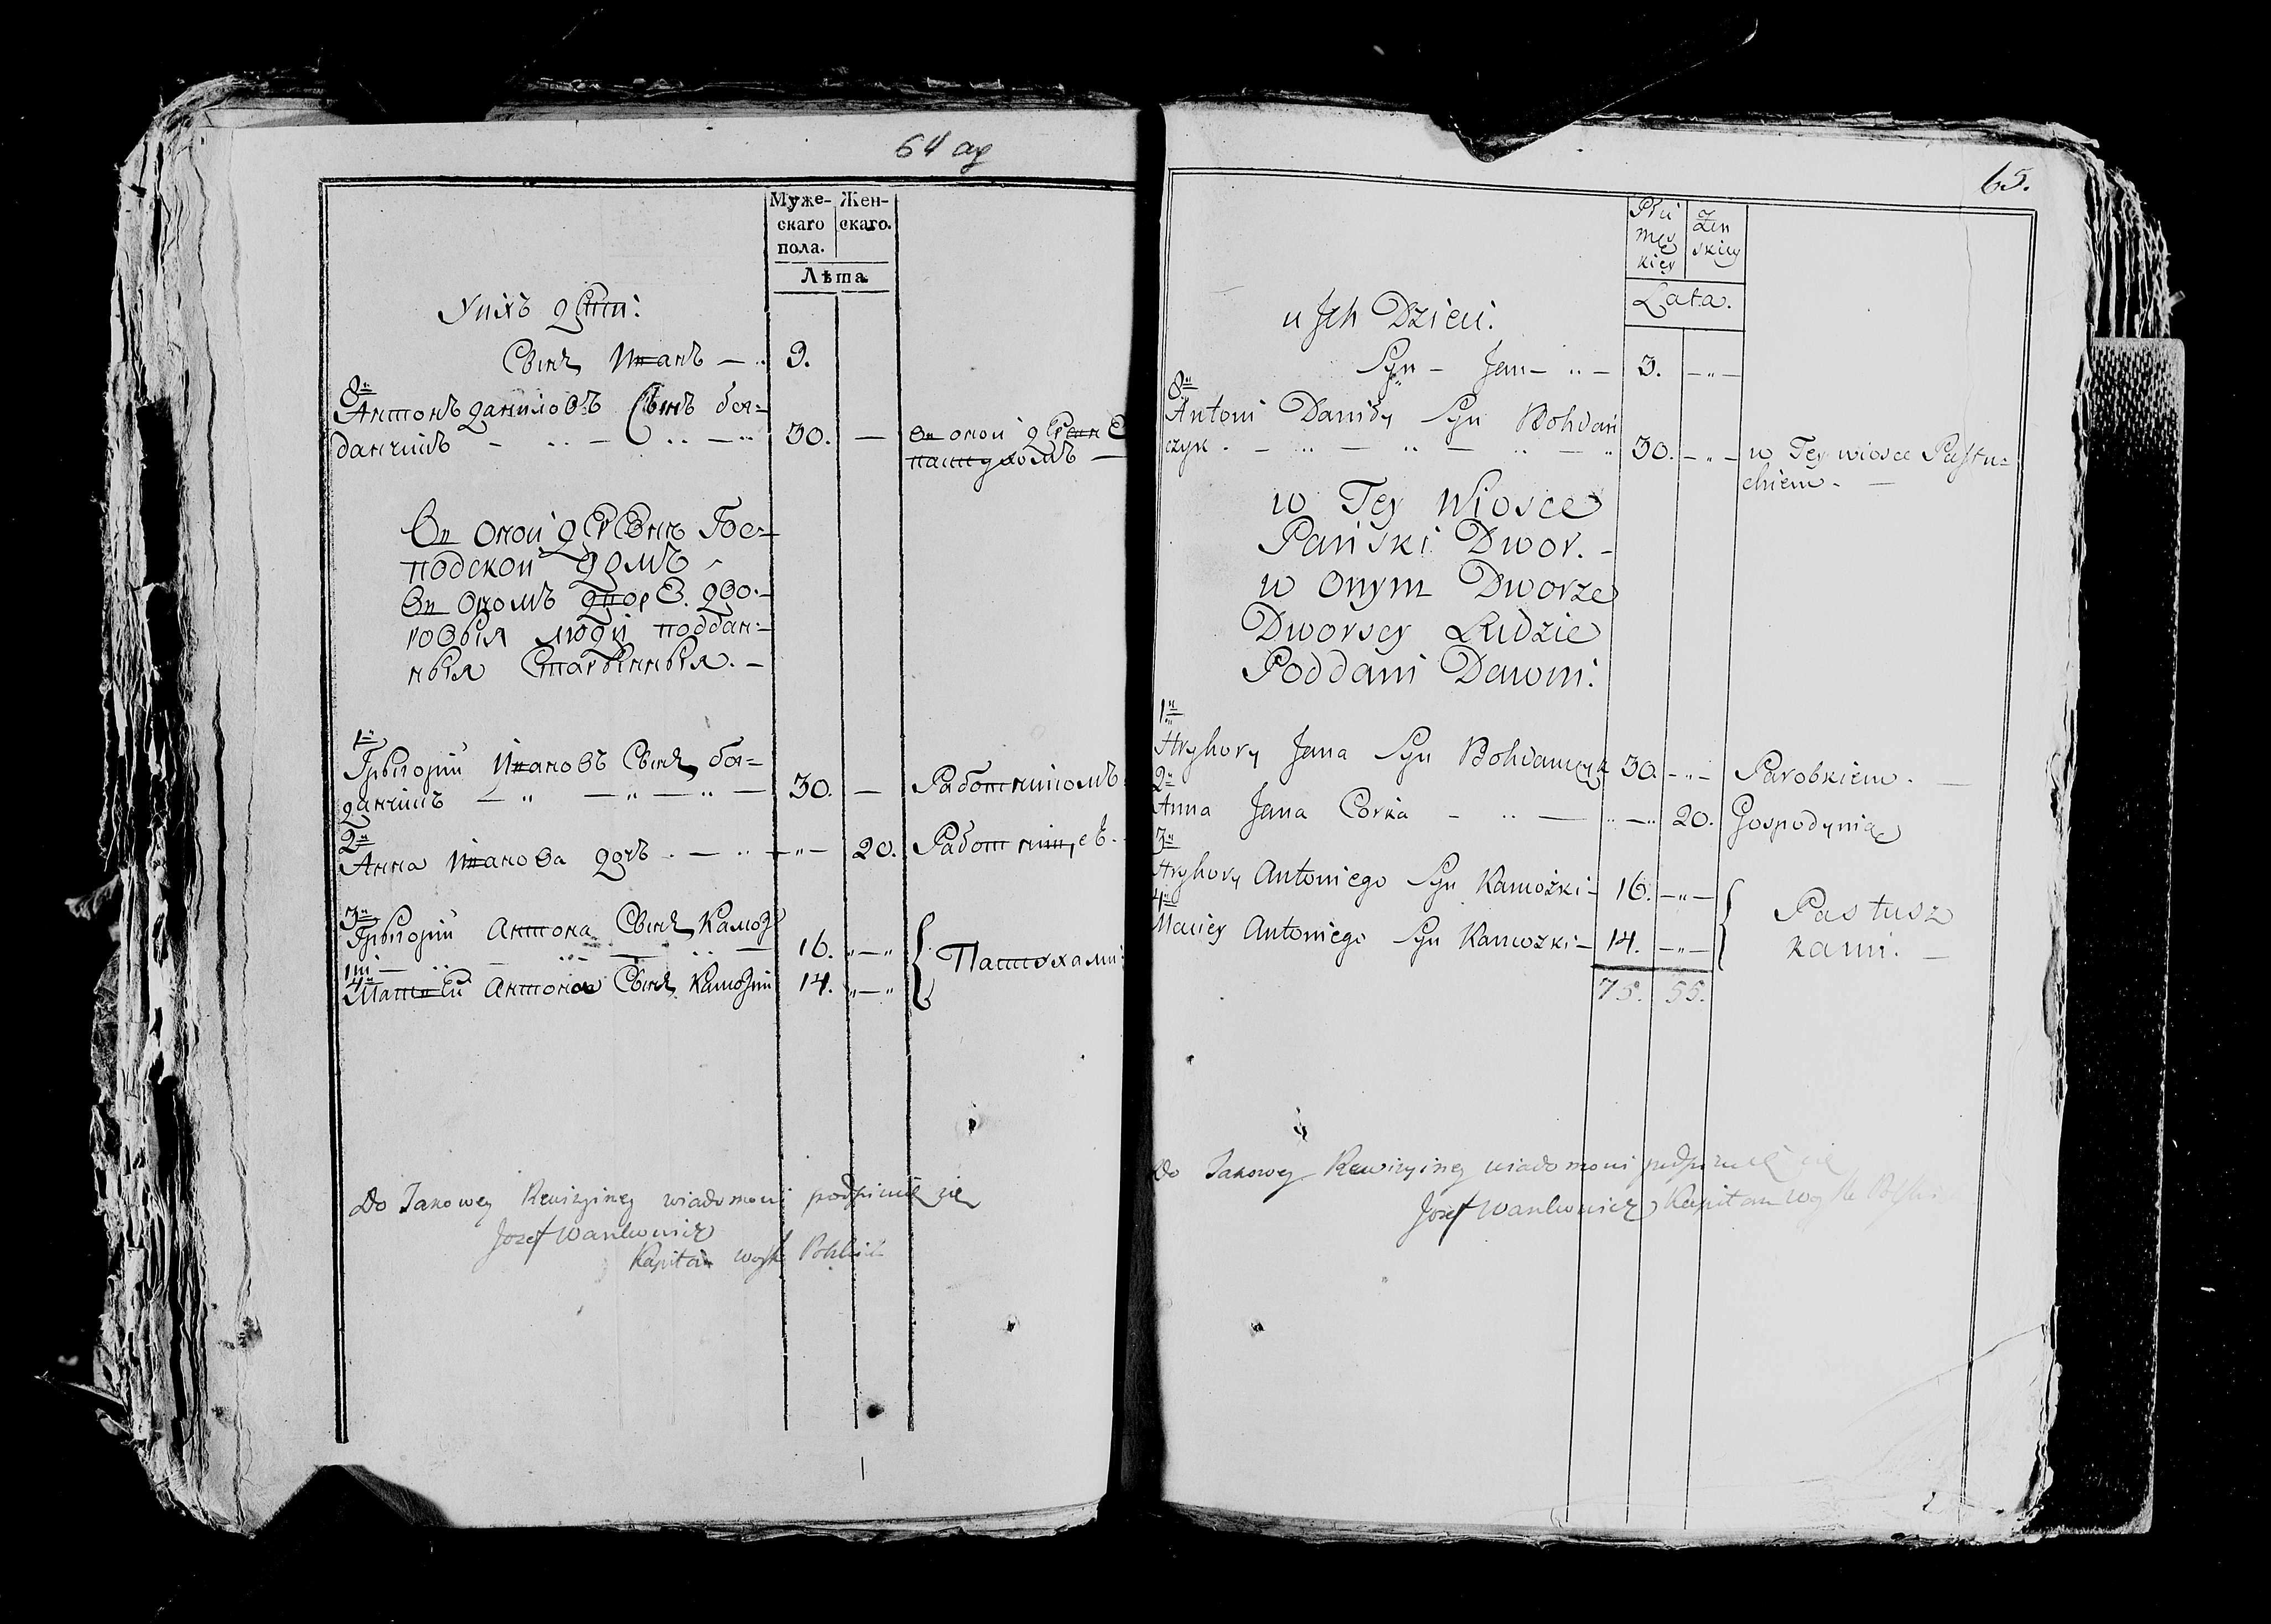 64 об
Муже-
скаго
пола.
Жен-
скаго.
Лѣта
У нихъ дѣти:
Сынъ Иванъ — 9.
8й
Антонъ Даниловъ Сынъ бог=
данчикъ — 30. — Въ оной деревнѣ
пастухомъ —
Въ оной деревнѣ Гос=
подской домъ
Въ ономъ дворѣ дво=
ровыя люди поддан=
ныя Старынныя. —
1й
Грыгорий Ивановъ Сынъ бог=
данчикъ — 30. — Работникомъ
2я
Анна Иванова дочь — 20. Работницей.
3й
Грыгорий Антона Сынъ Камоз=
ки — 16. „—„
4й
Матвей Антонов Сынъ Камозки 14. „—„
Пастухами:
Do Takowey Rewizyiney wiadomości podpisuię się
Jozef Wankowicz
Kapitan woysk Polskich
65.
Płci
męs
kiey
Żeń
skiey
Lata.
u Jch Dzieci:
Syn — Jan — 3. —„—
8ÿ
Antoni Daniły Syn Bohdań
czyk. — 30. —„— w Tey wiosce Pastu=
chiem. —
w Tey Wiosce
Pański Dwor. —
w Onym Dworze
Dworscy Ludzie
Poddani Dawni:
1ÿ
Hryhory Jana Syn Bohdanczyk 30. —„— Parobkiem. —
2a
Anna Jana Corka — 20. Gospodynią
3ÿ
Hryhory Antoniego Syn Kamozki — 16. —„—
4ÿ
Maciey Antoniego Syn Kamozki — 14. —„—
Pastusz
kami. —
75. 55.
Do Takowey Rewizyiney wiadomości podpisuię się
Jozef Wankowicz Kapitan Woysk Polskich